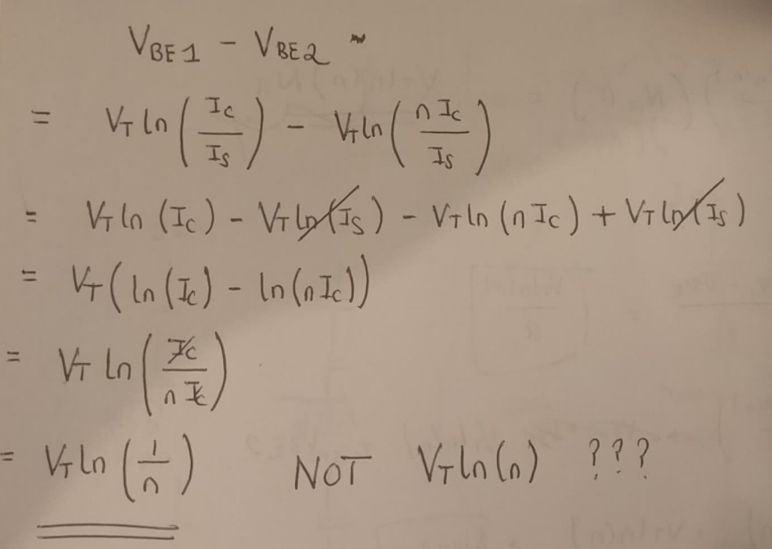 V_BE1 - V_BE2 ~
= V_T ln(I_C/I_S) - V_T ln(n I_C/I_S)
= V_T ln(I_C) - V_T ln(I_S) - V_T ln(n I_C) + V_T ln(I_S)
= V_T(ln(I_C) - ln(n I_C))
= V_T ln(I_C/n I_C)
= V_T ln(1/n) NOT V_T ln(n) ???